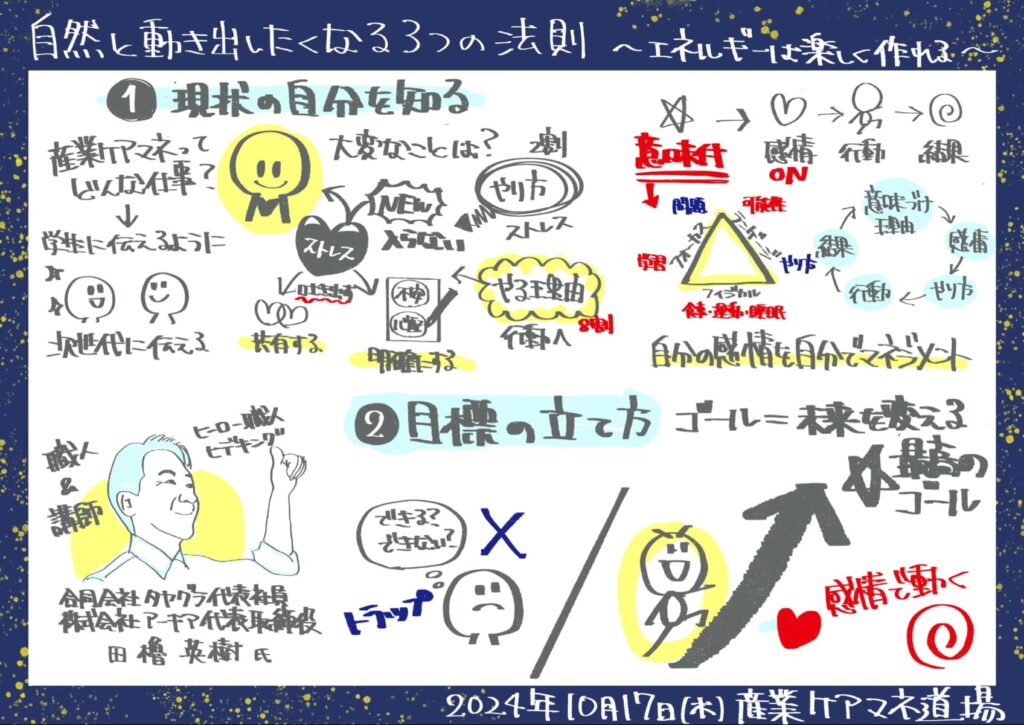 自然と動き出したくなる3つの法則 ～エネルギーは楽しく作れる～
1 現状の自分を知る
産業ケアマネって
どんな仕事?
↓
学生に伝えるように
次世代に伝える
大変なことは?
2割
やり方
ストレス
NEW
入らない
ストレス
吐き出す
共有する
不安
心配
明確にする
やる理由
8割
行動へ
☆ → ♡ → →
意味付
感情
ON
行動
結果
問題
可能性
フォーカス
学習
やり方
フィジカル
食事・運動・睡眠
意味づけ
理由
感情
やり方
行動
結果
自分の感情を自分でマネジメント
職人
&
講師
ヒーロー職人
ヒデキング
合同会社タヤグラ代表社員
株式会社アーキア代表取締役
田櫓 英樹 氏
2 目標の立て方 ゴール=未来を変える
できる?
できない?
X
トラップ
☆ 最高の
ゴール
感情で動く
2024年10月17日(木) 産業ケアマネ道場